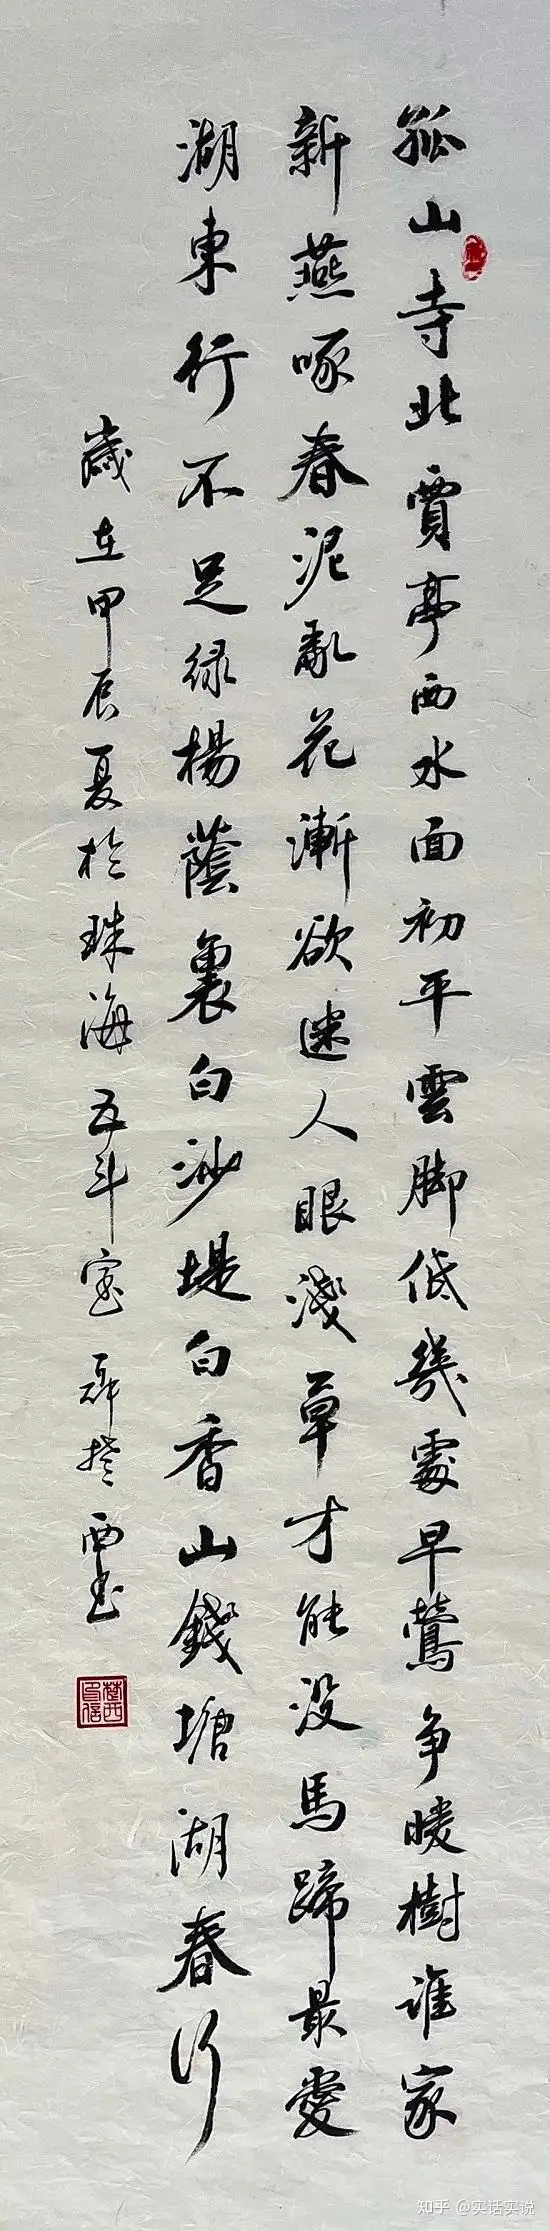 孤山寺北賈亭西水面初平雲脚低幾處早鶯争暖樹誰家
新燕啄春泥亂花漸欲迷人眼淺草才能没馬蹄最愛
湖東行不足绿楊蔭裏白沙堤白香山錢塘湖春行
歲在甲辰夏於珠海五斗室楚西书
楚西印信
知乎 @实话实说